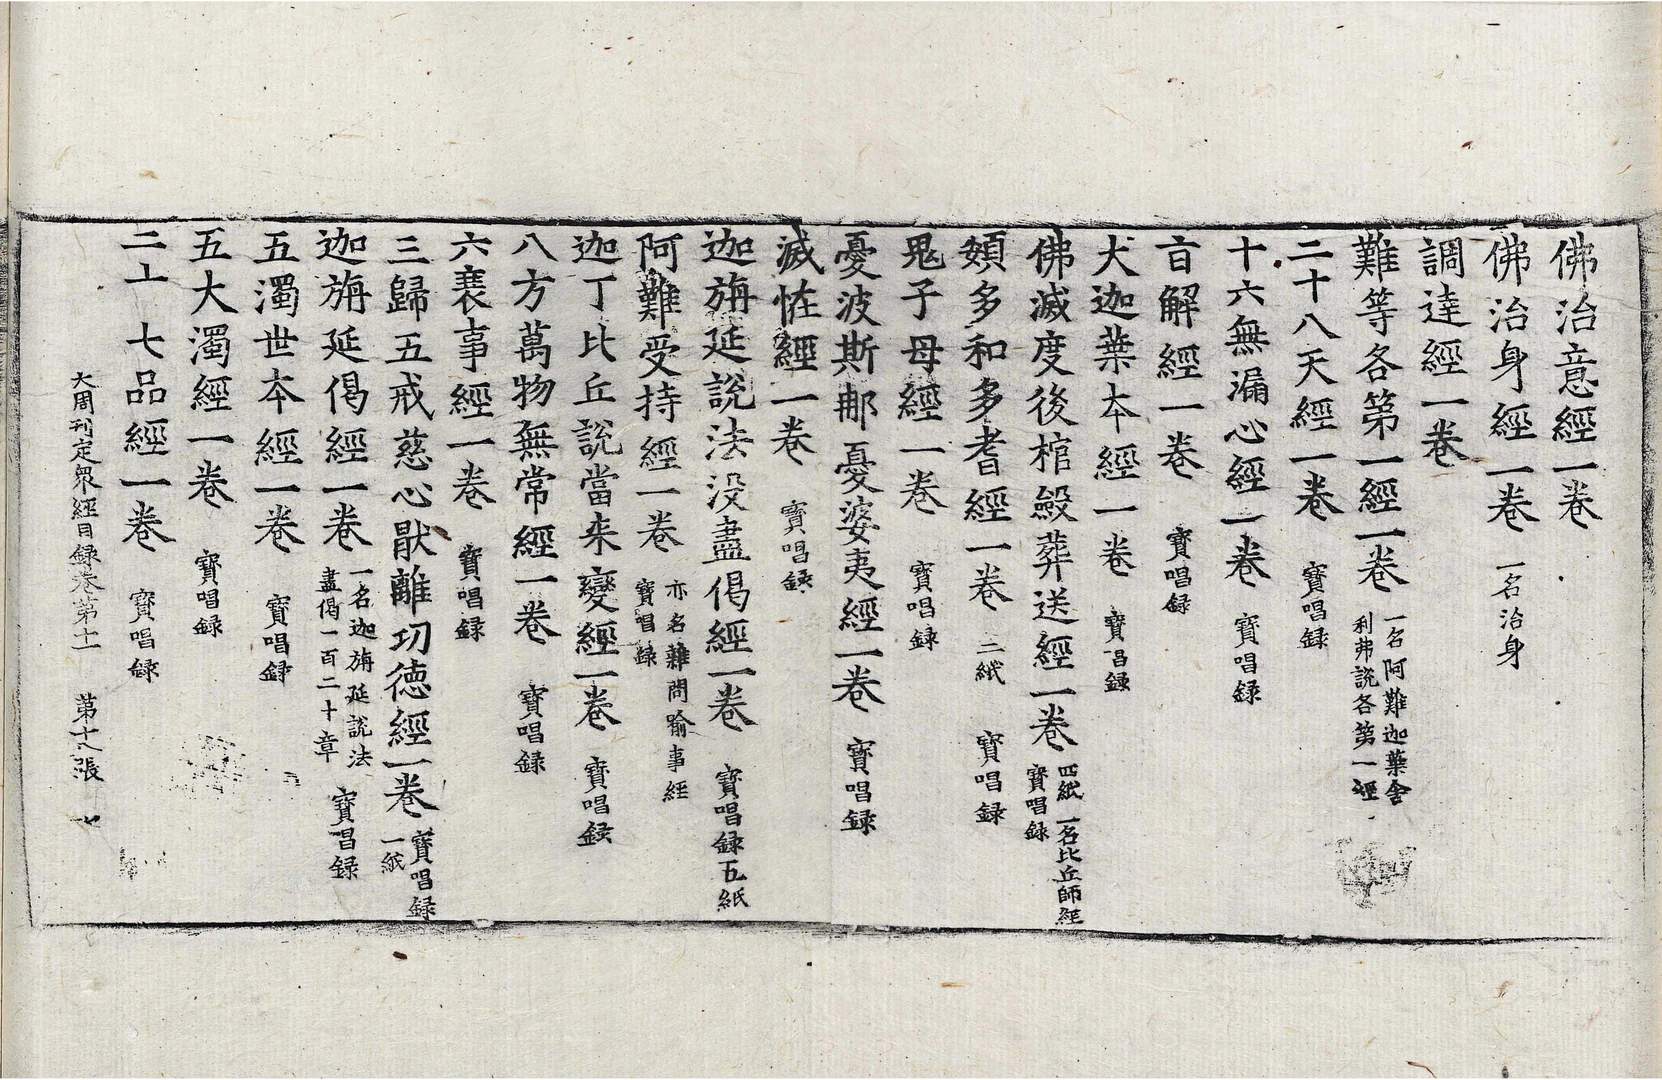 佛治意經一卷
佛治身經一卷 一名治身
調達經一卷
難等各第一經一卷 一名阿難迦葉舍利弗說各第一經
二十八天經一卷 寶唱録
十六無漏心經一卷 寶唱録
盲解經一卷 寶唱録
大迦葉本經一卷 寶唱録
佛滅度後棺殮葬送經一卷 四紙一名比丘師經寶唱録
頞多和多耆經一卷 二紙 寶唱録
鬼子母經一卷 寶唱録
憂波斯那憂婆夷經一卷 寶唱録
滅恠經一卷 寶唱録
迦旃延說法没盡偈經一卷 寶唱録五紙
阿難受持經一卷 亦名雜問喻事經寶唱録
迦丁比丘說當来變經一卷 寶唱録
八方萬物無常經一卷 寶唱録
六衰事經一卷 寶唱録
三歸五戒慈心猒離功徳經一卷 寶唱録一紙
迦旃延偈經一卷 一名迦旃延說法盡偈一百二十章 寶唱録
五濁世本經一卷 寶唱録
五大濁經一卷 寶唱録
七品經一卷 寶唱録
大周刊定衆經目録卷第十一 第十八張